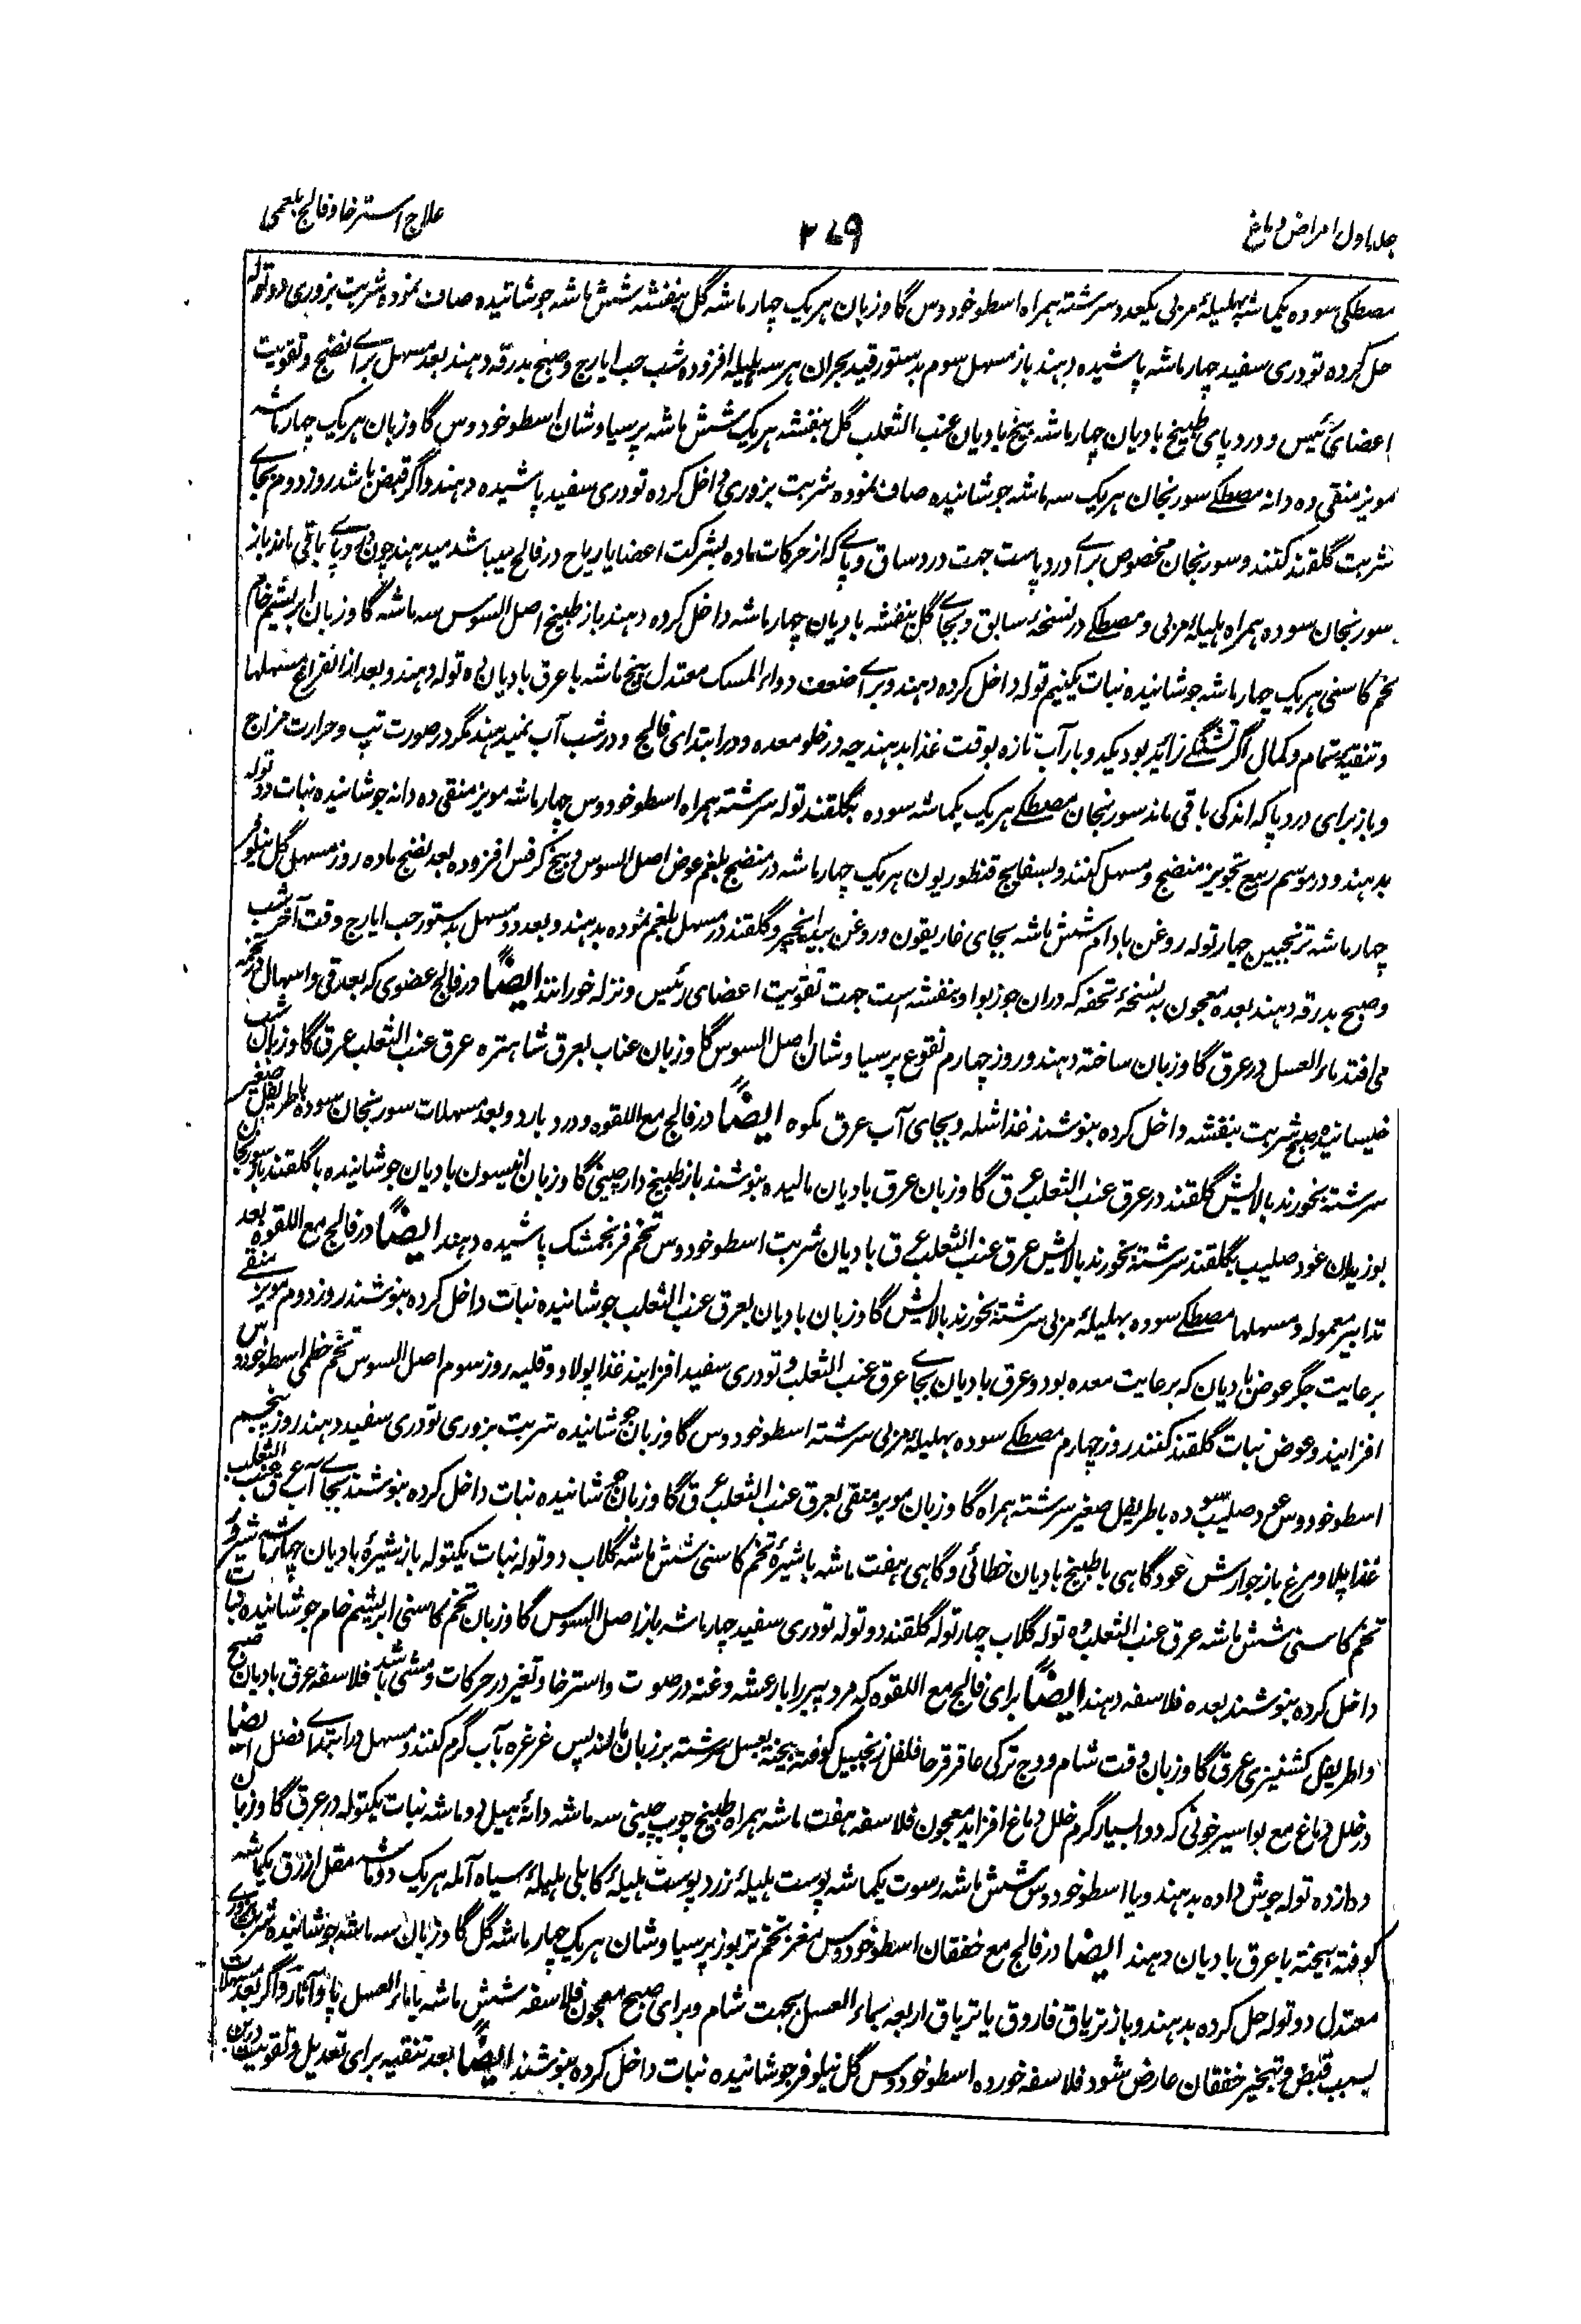 جلد اول امراض دماغ
۳۷۹
علاج استرخا و فالج بلغمی
مصطکی سوده یکماشه بهلیلهٔ مربی یکعدد سرشته همراه اسطوخودوس گاوزبان هریک چهار ماشه گل بنفشه شش ماشه جوشانیده صاف نموده شربت بزوری دو توله
حل کرده تودری سفید چهار ماشه پاشیده دهند باز مسهل سوم بدستور قید بحران هر سه هلیله افزوده شب حب ایارج و صبح بدرقه دهند بعد مسهل برای نضج و تقویت
اعضای رئیس و درد پای طبیخ بادیان چهار ماشه بیخ بادیان عنب الثعلب گل بنفشه هریک شش ماشه پرسیاوشان اسطوخودوس گاوزبان هریک چهار ماشه
مویز منقی ده دانه مصطکی سورنجان هریک سه ماشه جوشانیده صاف نموده شربت بزوری داخل کرده تودری سفید پاشیده دهند و اگر قبض باشد روز دوم بجای
شربت گلقند کنند و سورنجان مخصوص برای درد پاست جهت درد ساق و پای که از حرکات ماده بشرکت اعضا یا ریاح در فالج میباشد میدهند چون درد پای باقی ماند باز
سورنجان سوده همراه هلیلهٔ مربی و مصطکی در نسخهٔ سابق و بجای گل بنفشه بادیان چهار ماشه داخل کرده دهند باز طبیخ اصل السوس سه ماشه گاوزبان ابریشم خام
تخم کاسنی هریک چهار ماشه جوشانیده نبات یکنیم توله داخل کرده دهند و برای ضعف دواء المسک معتدل پنج ماشه با عرق بادیان ده توله دهند و بعد از انفراغ مسهلها
و تنقیه بتمام و کمال اگر تشنگی زاید بود یکدو بار آب تازه بوقت غذا بدهند چه در خلو معده و در ابتدای فالج و در شب آب نمیدهند مگر در صورت تپ و حرارت مزاج
و باز برای درد پا که اندکی باقی ماند سورنجان مصطکی هریک یکماشه سوده بگلقند توله سرشته همراه اسطوخودوس چهار ماشه مویز منقی ده دانه جوشانیده نبات دو توله
بدهند و در موسم ربیع تجویز منضج و مسهل کنند و بسفایج قنطوریون هریک چهار ماشه در منضج بلغم عوض اصل السوس و بیخ کرفس افزوده بعد نضج ماده روز مسهل گل نیلوفر
چهار ماشه ترنجبین چهار توله روغن بادام شش ماشه بجای غاریقون و روغن بیدانجیر و گلقند در مسهل بلغم نموده بدهند و بعد دو مسهل بدستور حب ایارج وقت آخر شب
و صبح بدرقه دهند بعده معجون به نسخهٔ تحفه که دران جوزبوا و بنفشه است جهت تقویت اعضای رئیس و نزله خورانند ایضاً در فالج عضوی که بعد قی و اسهال
می افتد ماء العسل در عرق گاوزبان ساخته دهند و روز چهارم نقوع پرسیاوشان اصل السوس گل و زبان عناب بعرق شاهتره عرق عنب الثعلب عرق گاوزبان شب
خیسانیده صبح شربت بنفشه داخل کرده بنوشند غذا شله و بجای آب عرق مکوه ایضاً در فالج مع اللقوه و درد بارد و بعد مسهلات سورنجان سوده باطریفل صغیر
سرشته بخورند بالایش گلقند در عرق عنب الثعلب عرق گاوزبان عرق بادیان مالیده بنوشند باز طبیخ دارچینی گاوزبان انیسون بادیان جوشانیده با گلقند باز سورنجان
بوزیدان عود صلیب بگلقند سرشته بخورند بالایش عرق عنب الثعلب عرق بادیان شربت اسطوخودوس تخم فرنجمشک پاشیده دهند ایضاً در فالج مع اللقوه بعد
تدابیر معموله و مسهلها مصطکی سوده بهلیلهٔ مربی سرشته بخورند بالایش گاوزبان بادیان بعرق عنب الثعلب جوشانیده نبات داخل کرده بنوشند روز دوم مویز منقی
برعایت جگر عوض بادیان که برعایت معده بود و عرق بادیان بجای عرق عنب الثعلب و تودری سفید افزایند غذا پولاو و قلیه روز سوم اصل السوس تخم خطمی اسطوخودوس
افزایند و عوض نبات گلقند کنند روز چهارم مصطکی سوده بهلیلهٔ مربی سرشته اسطوخودوس گاوزبان جوشانیده شربت بزوری تودری سفید دهند روز پنجم
اسطوخودوس عود صلیب سوده باطریفل صغیر سرشته همراه گاوزبان مویز منقی بعرق عنب الثعلب عرق گاوزبان جوشانیده نبات داخل کرده بنوشند بجای آب عرق عنب الثعلب
غذا پلاو مرغ باز جوارش عود گاهی با طبیخ بادیان خطائی و گاهی هفت ماشه با شیرهٔ تخم کاسنی شش ماشه گلاب دو توله نبات یکتوله باز شیرهٔ بادیان چهار ماشه
تخم کاسنی شش ماشه عرق عنب الثعلب ده توله گلاب چهار توله گلقند دو توله تودری سفید چهار ماشه باز اصل السوس گاوزبان تخم کاسنی ابریشم خام جوشانیده نبات
داخل کرده بنوشند بعده فلاسفه دهند ایضاً برای فالج مع اللقوه که مرد پیر را با رعشه و غنه در صوت و استرخا و تغیر در حرکات و مشی باشد فلاسفه عرق بادیان صبح
و اطریفل کشنیزی عرق گاوزبان وقت شام و وج ترکی عاقرقرحا فلفل زنجبیل کوفته بیخته بعسل سرشته بر زبان مالند پس غرغره بآب گرم کنند و مسهل در ابتدای فصل ایضا
در خلل دماغ مع بواسیر خونی که دوا بسیار گرم خلل دماغ افزاید معجون فلاسفه هفت ماشه همراه طبیخ چوب چینی سه ماشه دانهٔ هیل دو ماشه نبات یکتوله در عرق گاوزبان
دوازده توله جوش داده بدهند و یا اسطوخودوس شش ماشه رسوت یکماشه پوست هلیلهٔ زرد پوست هلیلهٔ کابلی هلیلهٔ سیاه آمله هریک دو ماشه مقل ازرق یکماشه
کوفته بیخته با عرق بادیان دهند ایضاً در فالج مع خفقان اسطوخودوس مغز تخم تربوز پرسیاوشان هریک چهار ماشه گل گاوزبان سه ماشه جوشانیده شربت بزوری
معتدل دو توله حل کرده بدهند و باز تریاق فاروق یا تریاق اربعه بماء العسل بجهت شام و برای صبح معجون فلاسفه شش ماشه یا ماء العسل و اگر بعد مسهلات
بسبب قبض و تبخیر خفقان عارض شود فلاسفه خورده اسطوخودوس گل نیلوفر جوشانیده نبات داخل کرده بنوشند ایضاً بعد تنقیه برای تعدیل و تقویت